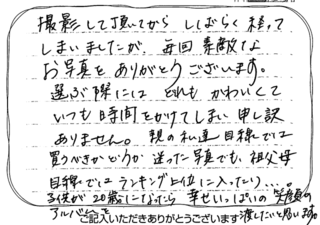 撮影して頂いてから しばらく経って
しまいましたが、毎回 素敵な
お写真を ありがとうございます。
選ぶ際には どれも かわいくて
いつも 時間をかけてしまい 申し訳
ありません。 親の私達 目線では
買うべきかどうか 迷った写真でも、祖父母
目線では ランキング上位に入ったり…。
子供が20歳になったら 幸せいっぱいの 笑顔の
アルバムを 渡したいと思います。
ご記入いただきありがとうございます